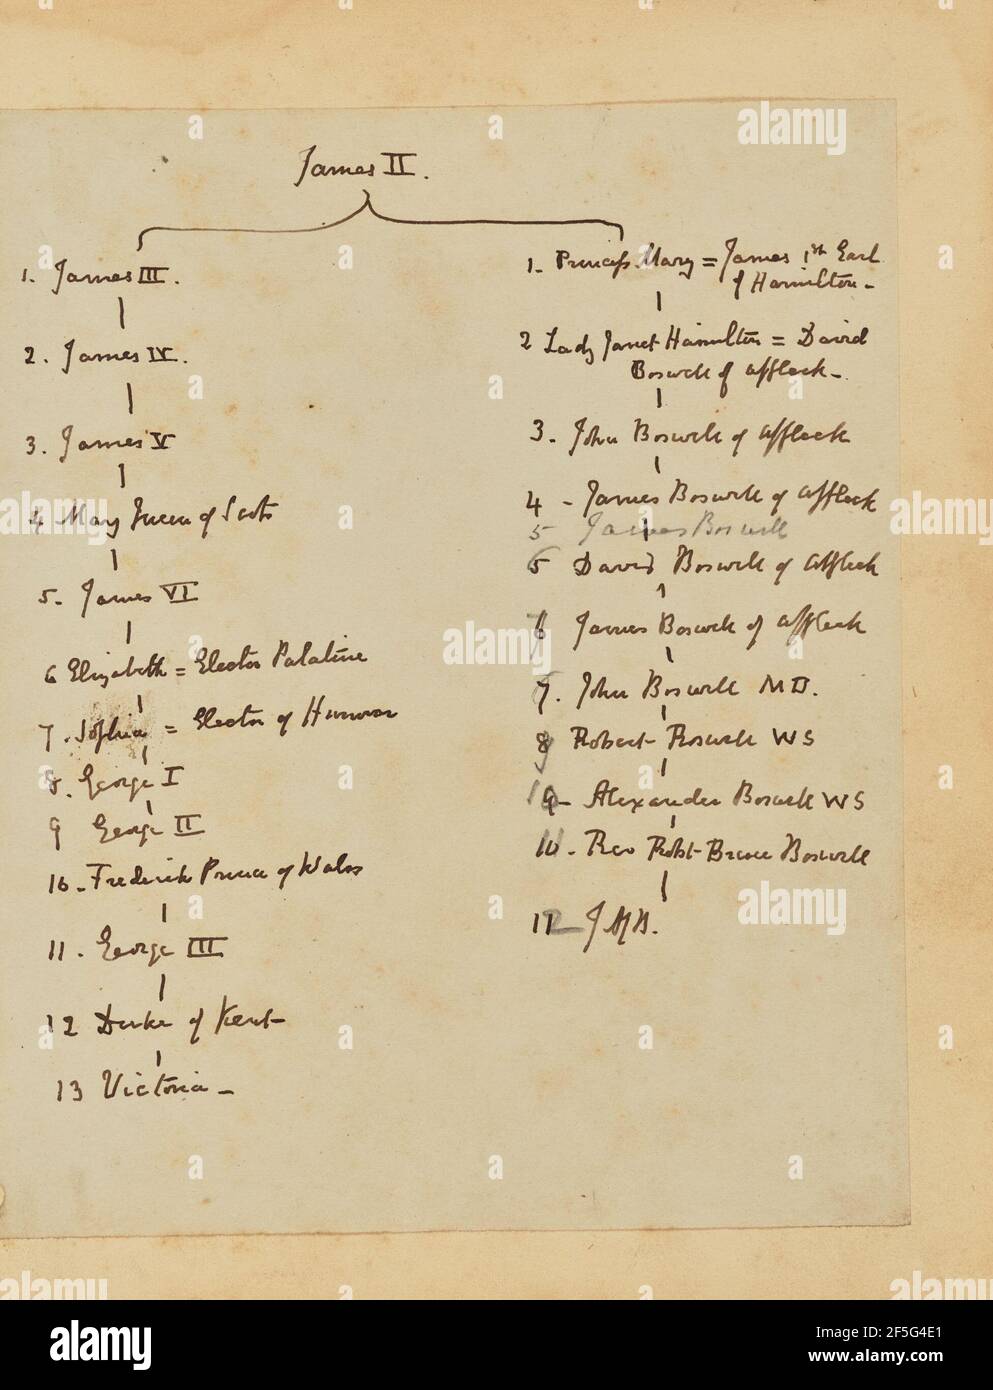 James II.
1. James III.
2. James IV.
3. James V
4 Mary Queen of Scots
5. James VI
6 Elizabeth = Elector Palatine
7. Sophia = Elector of Hanover
8. George I
9 George II
10. Frederick Prince of Wales
11. George III
12 Duke of Kent
13 Victoria
1. Princess Mary = James 1st Earl
of Hamilton
2 Lady Janet Hamilton = David
Boswell of Affleck
3. John Boswell of Affleck
4 - James Boswell of Affleck
5 James Boswell
6 David Boswell of Affleck
7 James Boswell of Affleck
John Boswell MD.
Robert Boswell WS
10 Alexander Boswell WS
11. Rev Robt Bruce Boswell
12 J
alamy
alamy
alamy
alamy
alamy
alamy
alamy
alamy
Image ID: 2F5G4E1
www.alamy.com